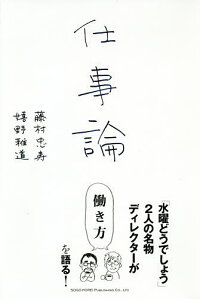 仕事論
藤村忠寿
嬉野雅道
「水曜どうでしょう」
2人の名物
ディレクターが
働き方
を語る！
SOGO HOREI Publishing Co., Ltd